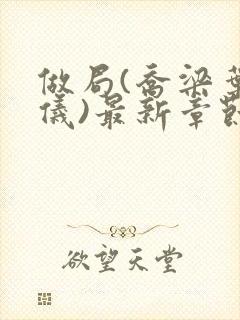 做局(乔梁叶
儀)最新章節
欲望天堂